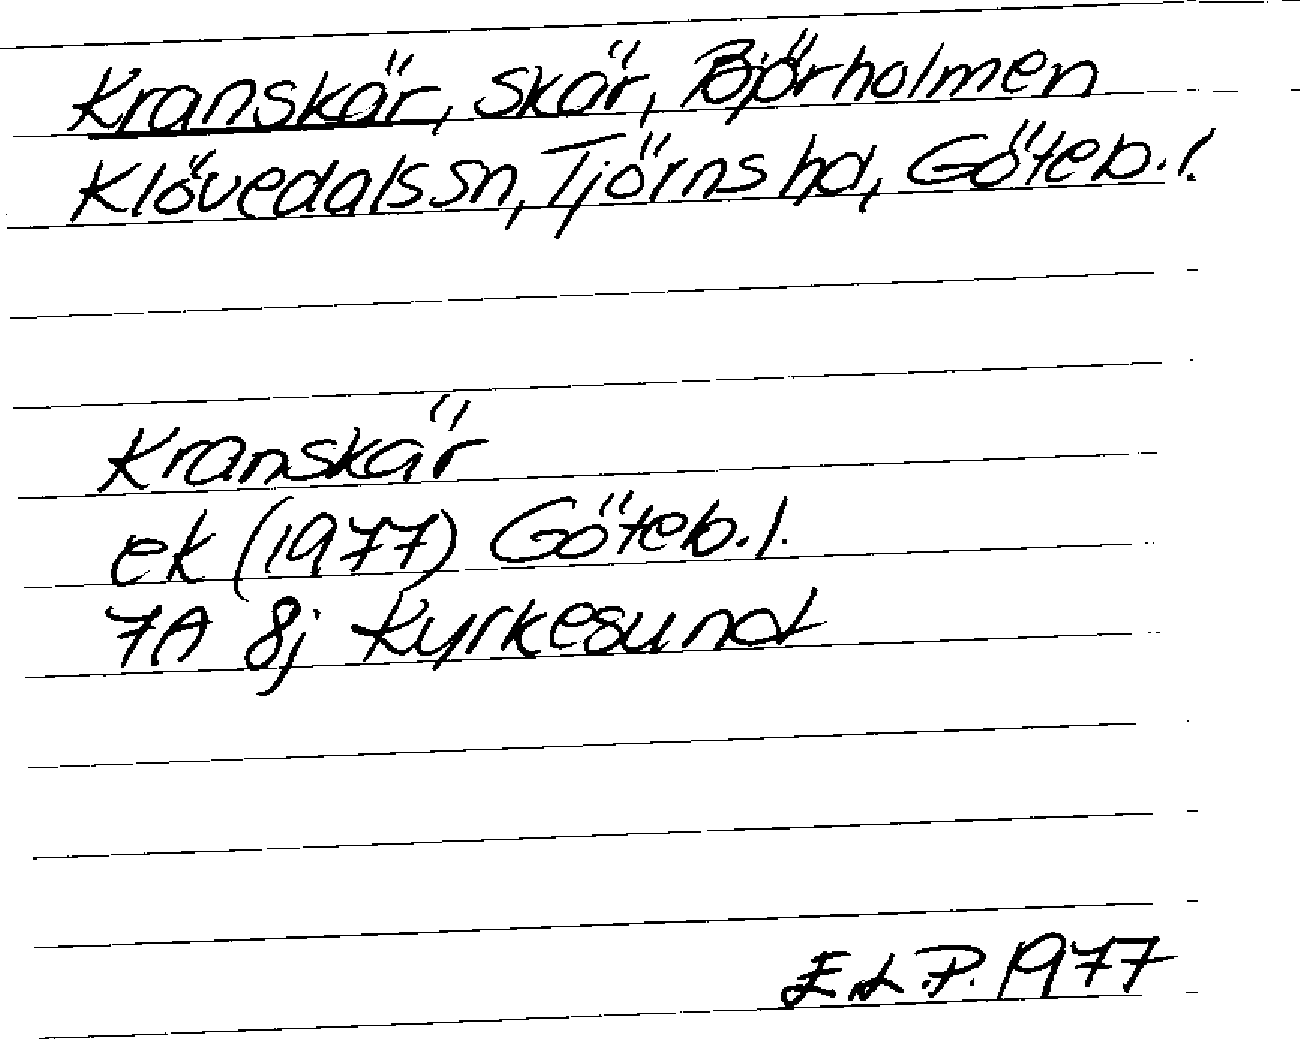 Kranskär, skär, Björholmen
Klövedals sn, Tjörns hd, Göteb. l.
Kranskär
ek (1977) Göteb. l.
7A 8j Kyrkesund
E.L.P. 1977